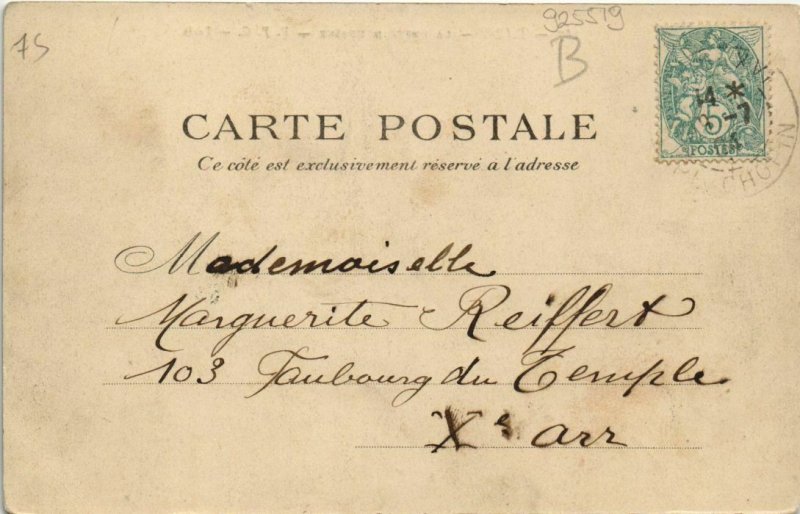 75
925519
B
CARTE POSTALE
Ce côté est exclusivement réservé a l'adresse
14 *
3 -7
5
POSTES
Mademoiselle
Marguerite Reiffert
103 Faubourg du Temple
Xe arr